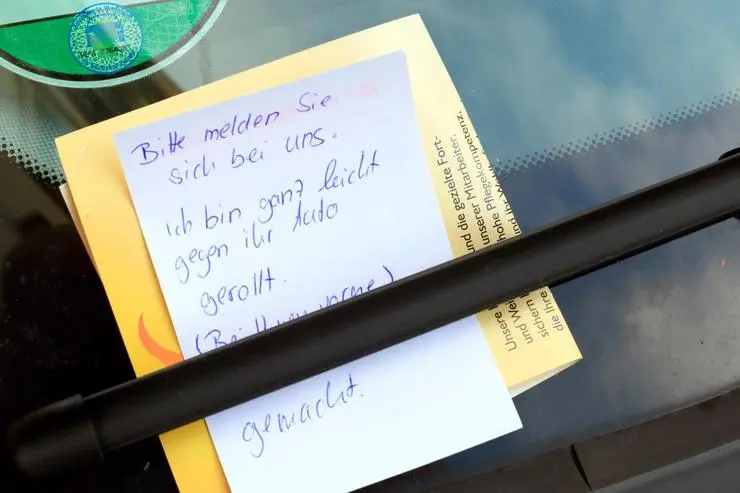 Bitte melden Sie
sich bei uns.
Ich bin ganz leicht
gegen ihr Auto
gerollt.
gemacht.
und die gezielte Fort-
unserer Mitarbeiter.
hohe Pflegekompetenz,
Unsere
und Wei
sichern
die Ihre